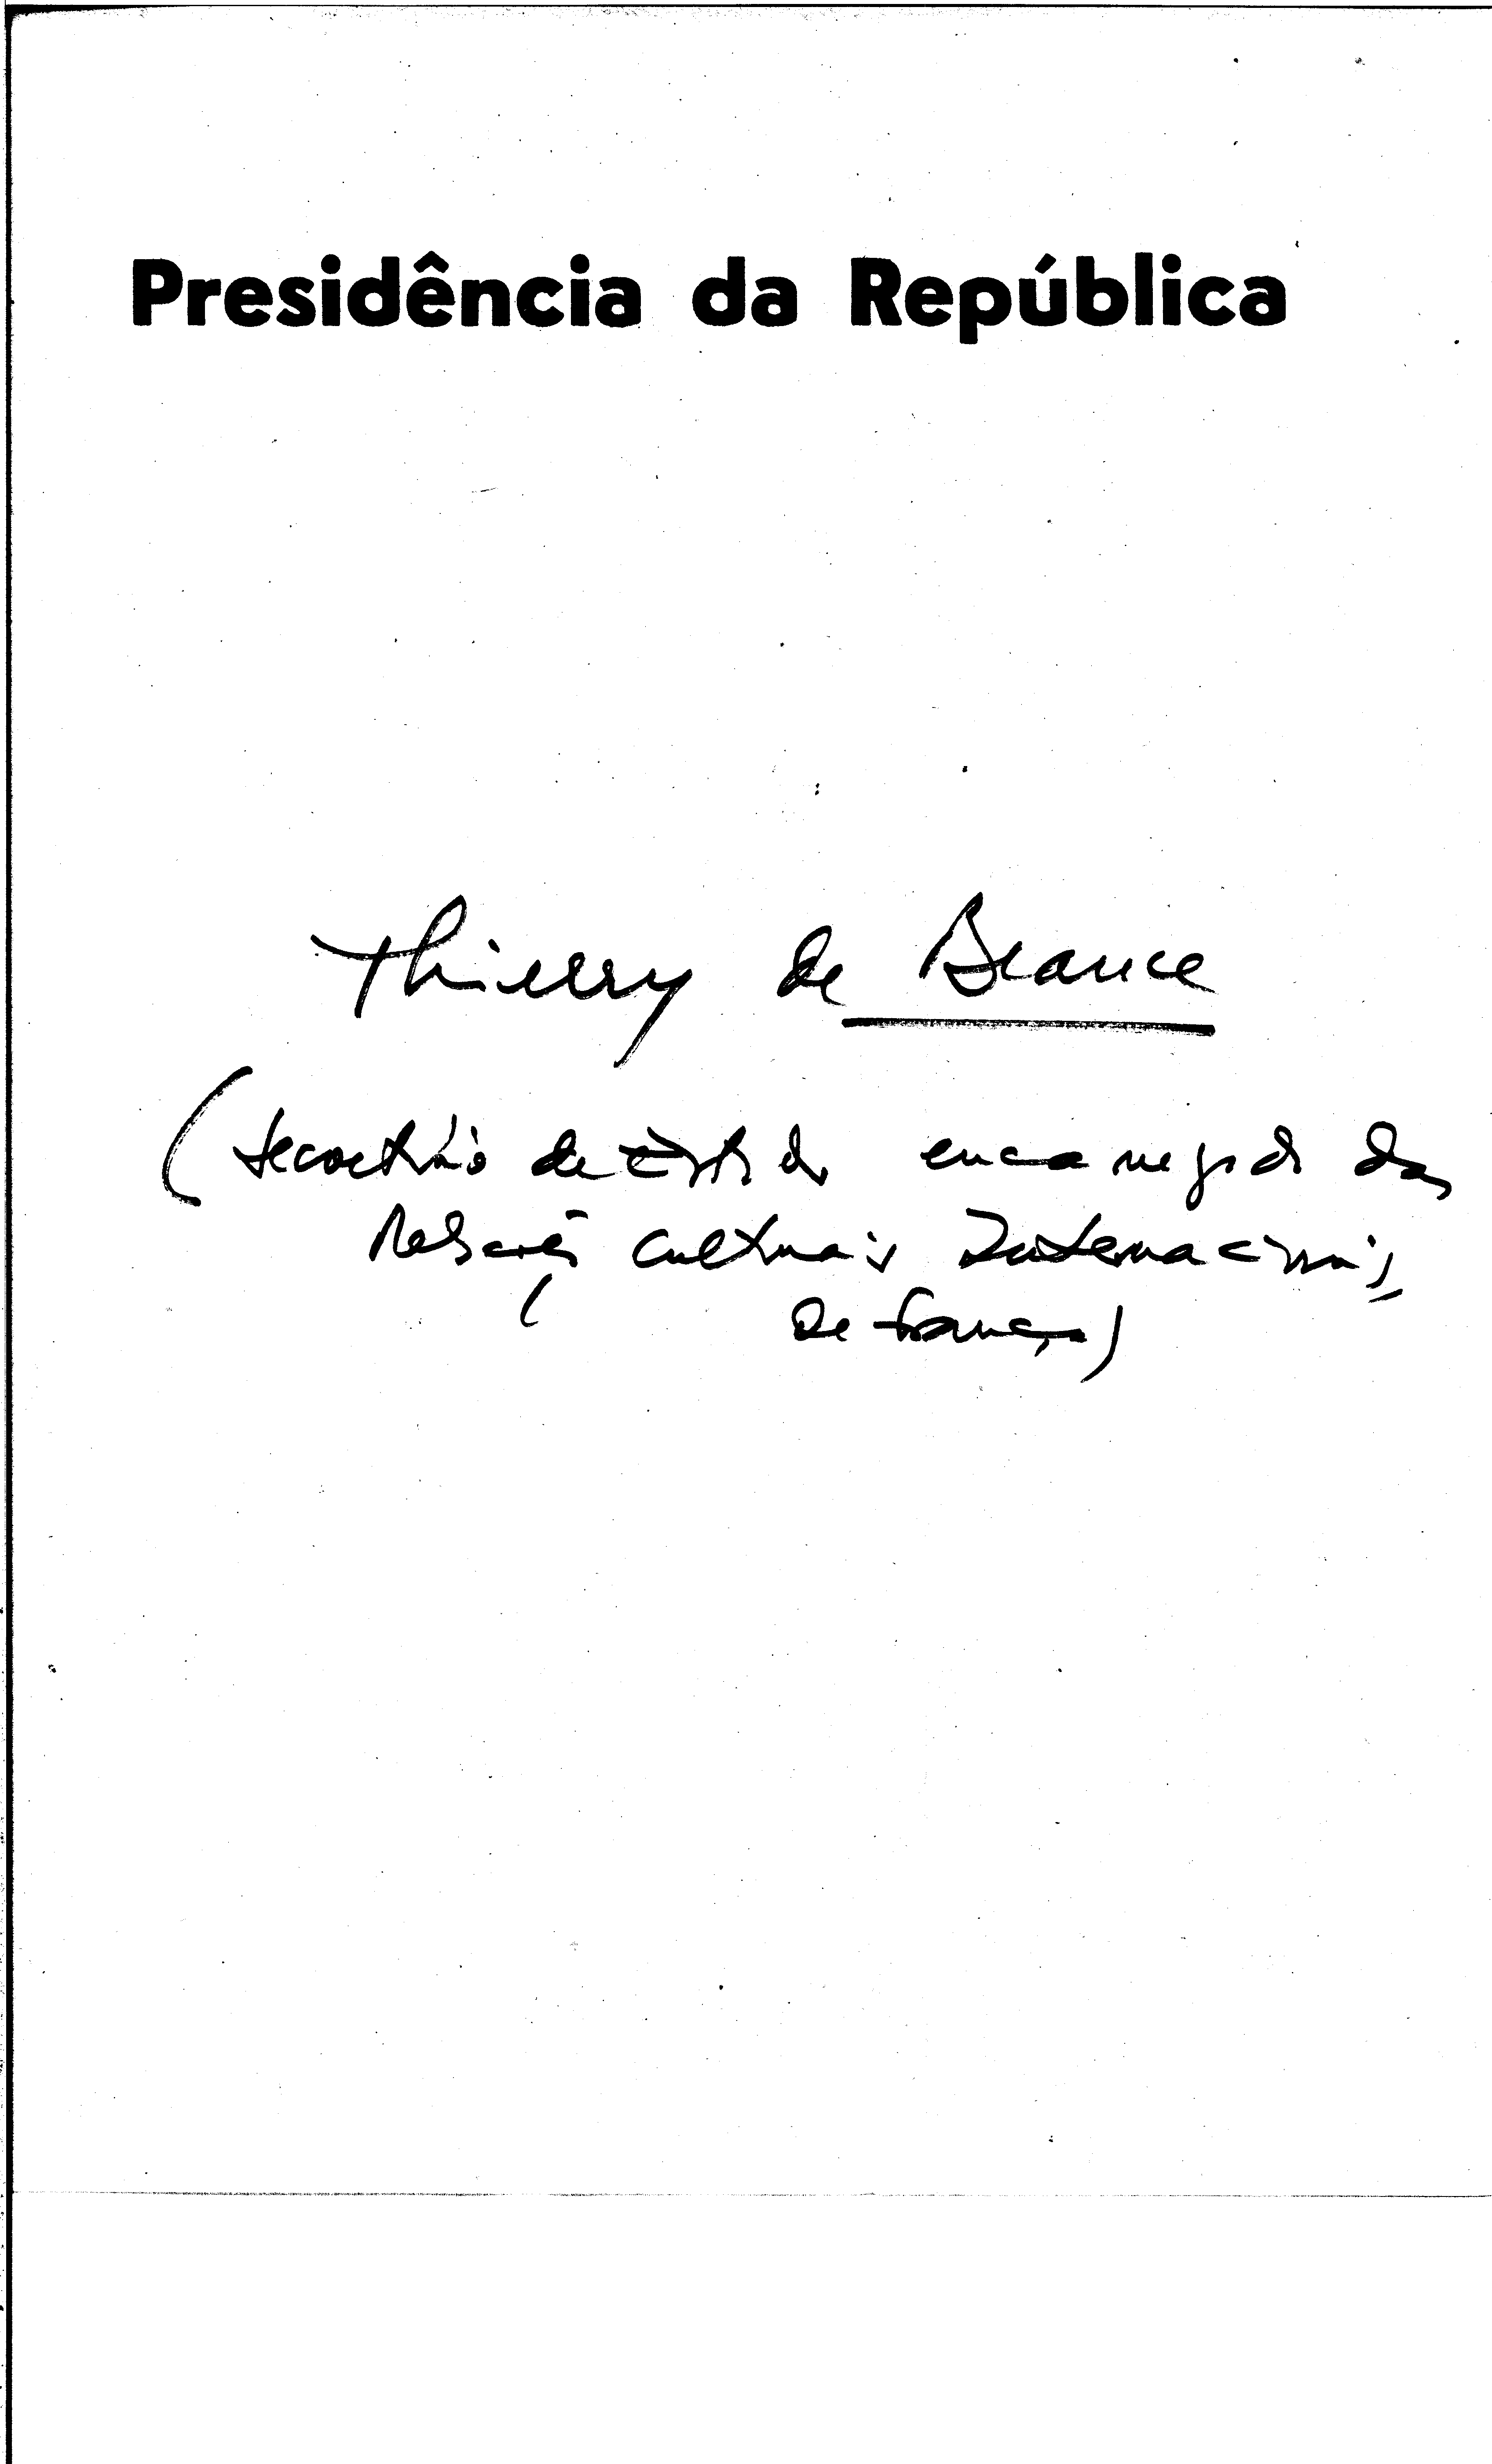 Presidência da República
Thierry de Beauce
(Secretário de Estado encarregado das
Relações Culturais Internacionais
de França)